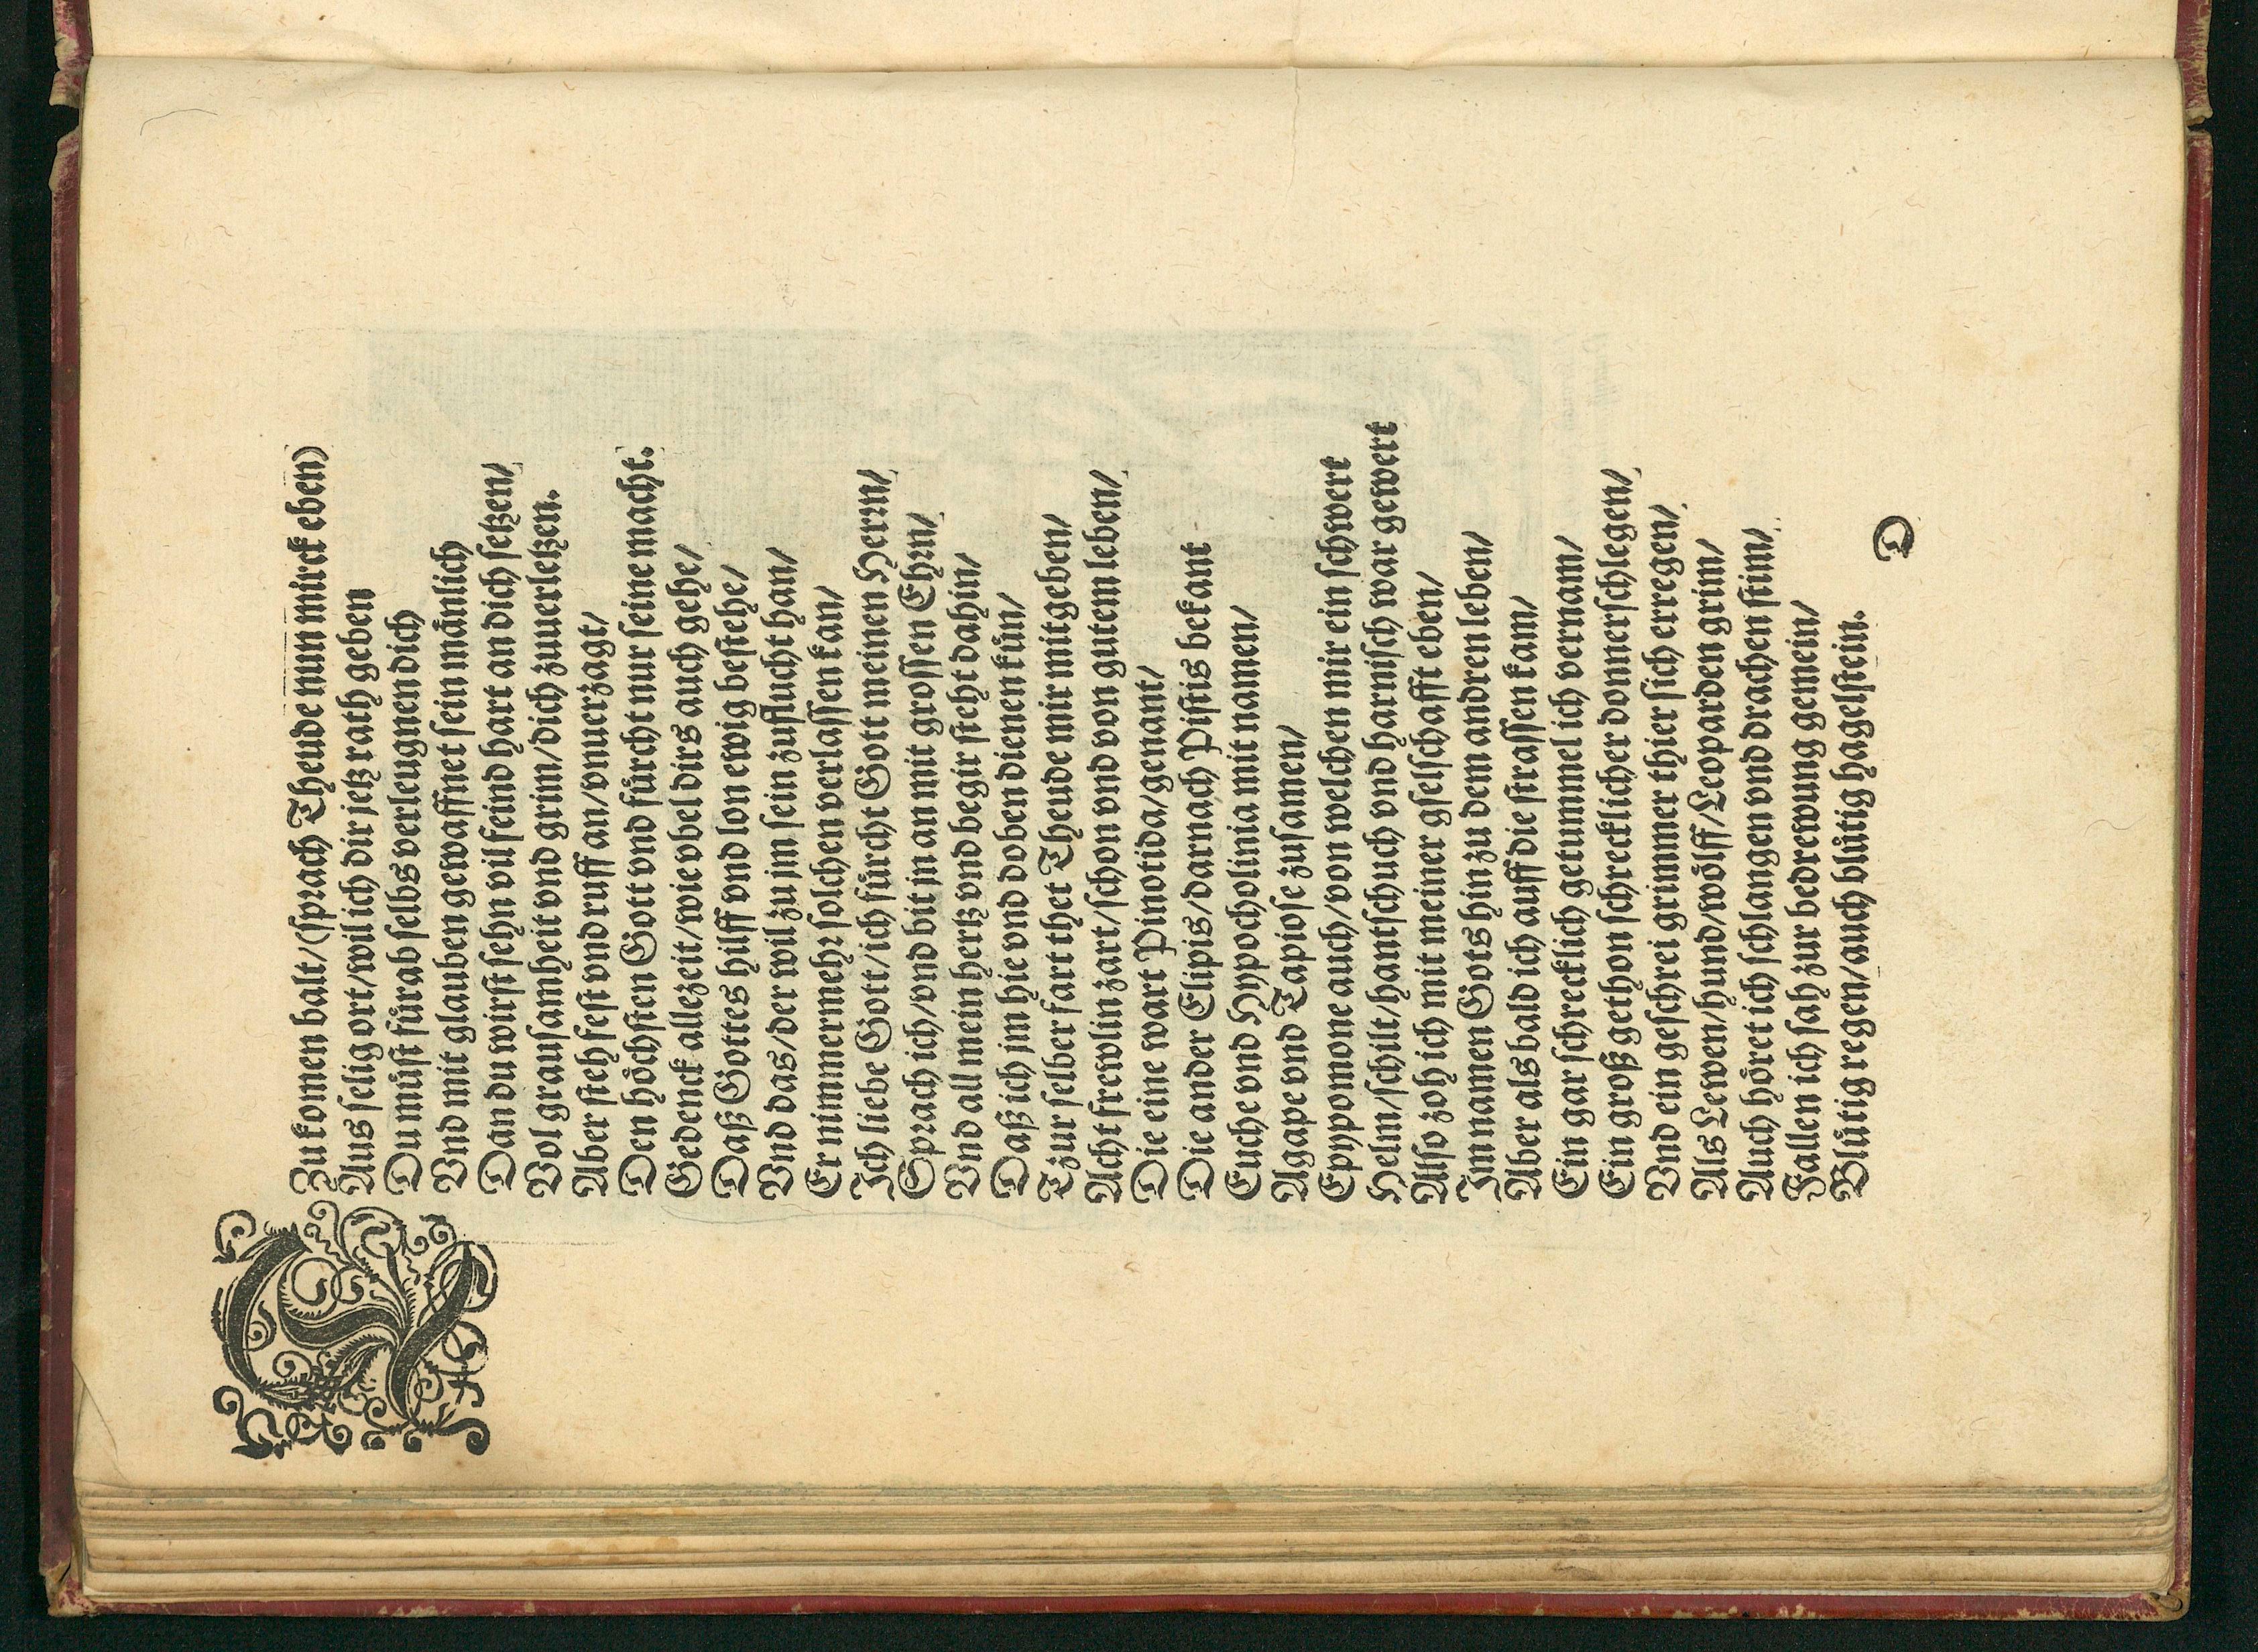 Zu komen balt/(sprach Theude nun mirck eben)
Aus selig ort/wil ich dir jetz rath geben
Du můst fürab selbs verleugnen dich
Vnd mit glauben gewaffnet sein mänlich
Dan du wirst sehn vil feind hart an dich setzen/
Vol grausamheit vnd grim/dich zuuerletzen.
Aber steh fest vnd ruff an/vnuerzagt/
Den höchsten Gott vnd fürcht nur seine macht.
Gedenck allezeit/wie vbel dirs auch gehe/
Daß Gottes hilff vnd lon ewig bestehe/
Vnd das/der wil zu jm sein zuflucht han/
Er nimmermehr solchen verlassen kan/
Ich liebe Gott/ich fürcht Gott meinen Herrn/
Sprach ich/vnd bit jn an mit grossen Ehrn/
Vnd all mein hertz vnd begir steht dahin/
Daß ich jm hie vnd doben dienen kün/
Tzur selber fart thet Theude mir mitgeben/
Acht frewlin zart/schon vnd von gutem leben/
Die eine wart Pinotida/genant/
Die ander Elipis/darnach Pistis bekant
Euche vnd Hypocholinia mit namen/
Agape vnd Tapiose zusamen/
Epypomone auch/von welchen mir ein schwert
Helm/schilt/hantschuch vnd harnisch war gewert
Also zoh ich mit meiner gselschafft eben/
Im namen Gots hin zu dem andren leben/
Aber als bald ich auff die strassen kam/
Ein gar schrecklich getummel ich vernam/
Ein groß gethon schrecklicher donnerschlegen/
Vnd ein geschrei grimmer thier sich erregen/
Als Lewen/hund/wölff/Leoparden grim/
Auch höret ich schlangen vnd drachen stim/
Fallen ich sah zur bedrewung gemein/
Blůtig regen/auch blůtig hagelstein.
D